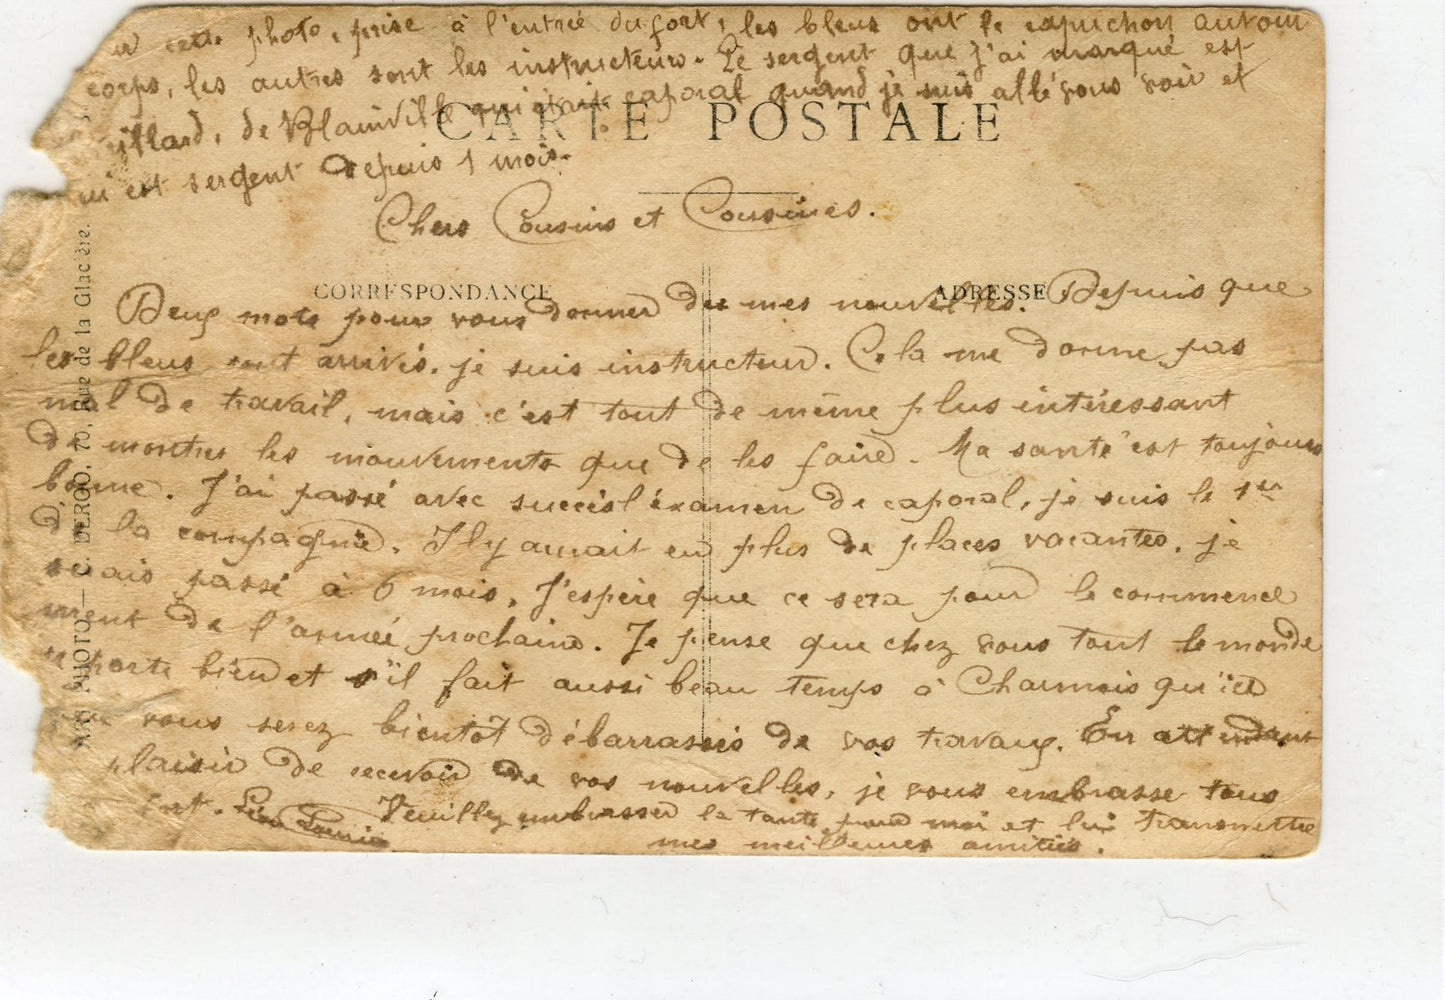 cette photo, prise à l'entrée du fort, les bleus ont le capuchon autour
corps, les autres sont les instructeurs. Le sergent que j'ai marqué est
de Blainville qui était caporal quand je suis allé vous voir et
est sergent depuis 1 mois.
CARTE POSTALE
Chers Cousins et Cousines.
CORRESPONDANCE
ADRESSE
Deux mots pour vous donner de mes nouvelles. Depuis que
les bleus sont arrivés, je suis instructeur. Cela me donne pas
mal de travail, mais c'est tout de même plus intéressant
de montrer les mouvements que de les faire. Ma santé est toujours
bonne. J'ai passé avec succès l'éxamen de caporal, je suis le 1er
de la compagnie. Il y aurait eu plus de places vacantes, je
serais passé à 6 mois. J'espère que ce sera pour le commence
ment de l'année prochaine. Je pense que chez vous tout le monde
porte bien et s'il fait aussi beau temps à Charmois qu'ici
vous serez bientôt débarrassés de vos travaux. En attendant
plaisir de recevoir de vos nouvelles, je vous embrasse tous
Veuillez embrasser la tante pour moi et lui transmettre
mes meilleures amitiés.
PHOTO — C. 70, Rue de la Glacière.